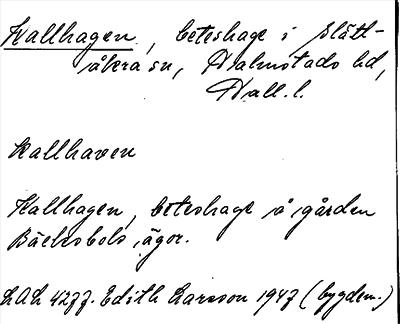 Kallhagen, beteshage i Slätt-
åkra sn, Halmstads hd,
Hall. l.
kallhaven
Kallhagen, beteshage å gården
Bäckabols ägor.
LAL 4277. Edith Larsson 1947 (bygdem.)